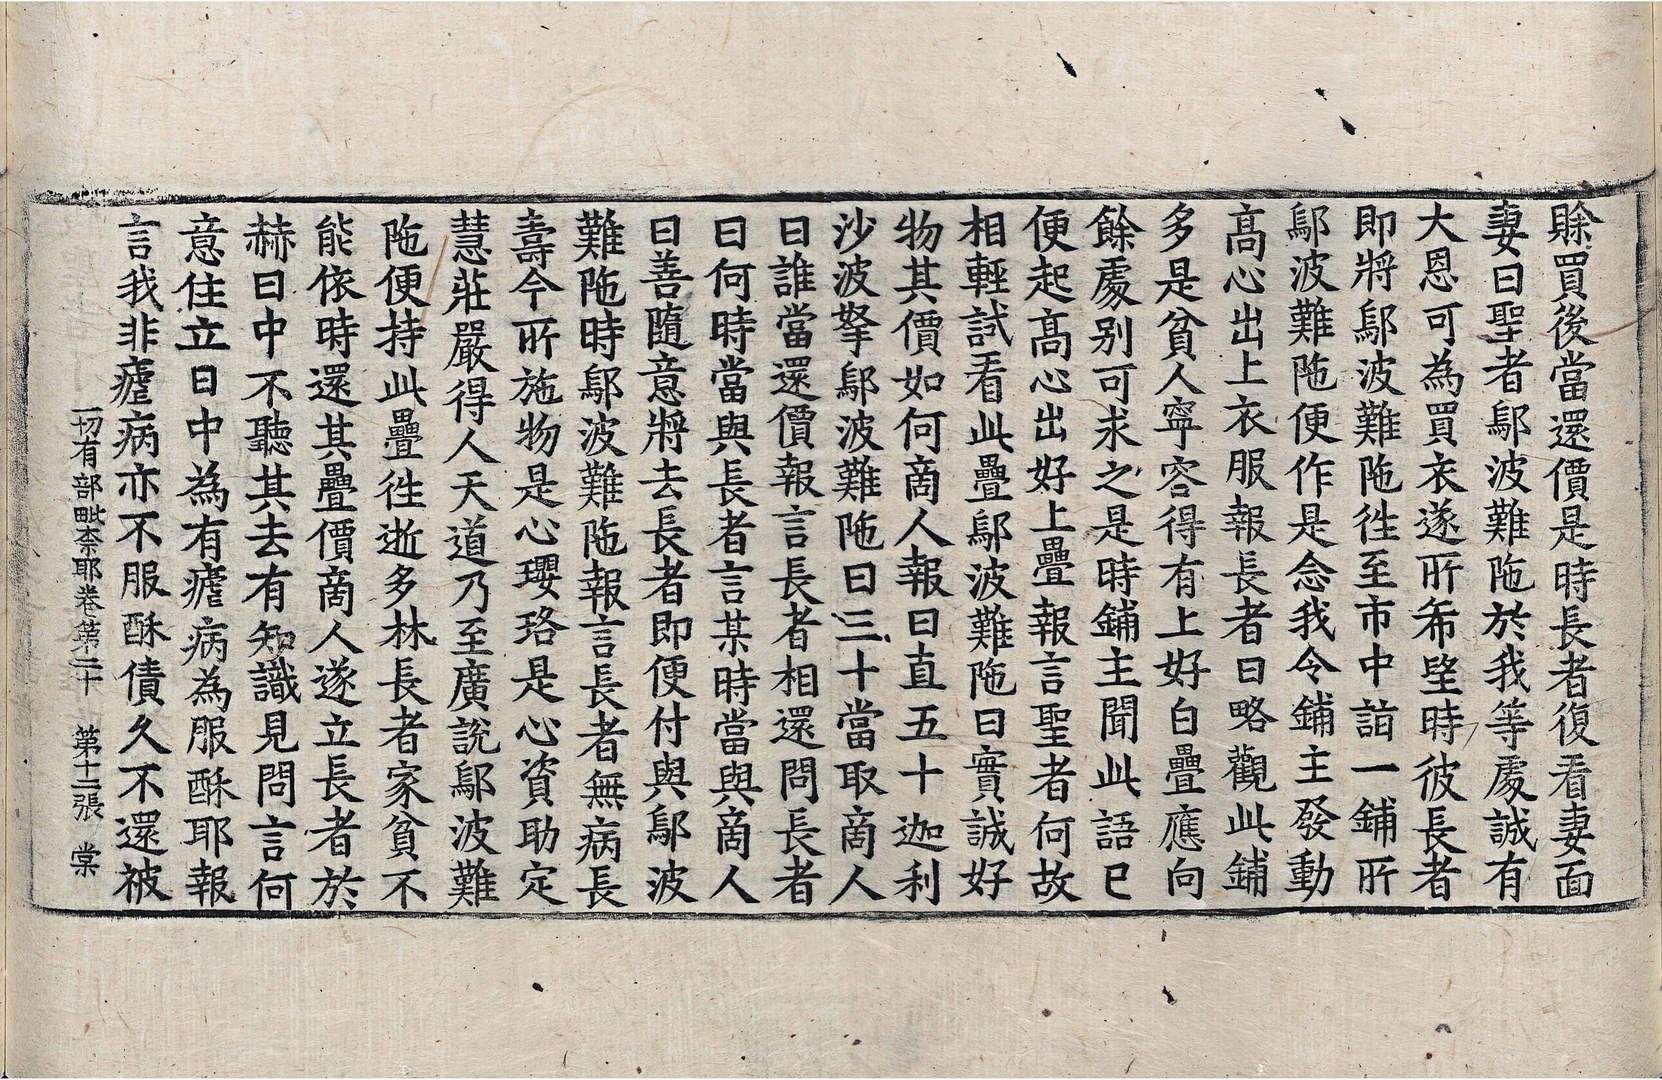 賖買後當還價是時長者復看妻面
妻曰聖者鄔波難陁於我等處誠有
大恩可為買衣遂所希望時彼長者
即將鄔波難陁往至市中詣一鋪所
鄔波難陁便作是念我今鋪主發動
高心出上衣服報長者曰略觀此鋪
多是貧人寧容得有上好白疊應向
餘處別可求之是時鋪主聞此語已
便起高心出好上疊報言聖者何故
相輕試看此疊鄔波難陁曰實誠好
物其價如何商人報曰直五十迦利
沙波拏鄔波難陁曰三十當取商人
曰誰當還價報言長者相還問長者
曰何時當與長者言某時當與商人
曰善隨意將去長者即便付與鄔波
難陁時鄔波難陁報言長者無病長
壽今所施物是心瓔珞是心資助定
慧莊嚴得人天道乃至廣說鄔波難
陁便持此疊往逝多林長者家貧不
能依時還其疊價商人遂立長者於
赫日中不聽其去有知識見問言何
意住立日中為有瘧病為服酥耶報
言我非瘧病亦不服酥債久不還被
一切有部毗奈耶卷第二十　第十二張　棠